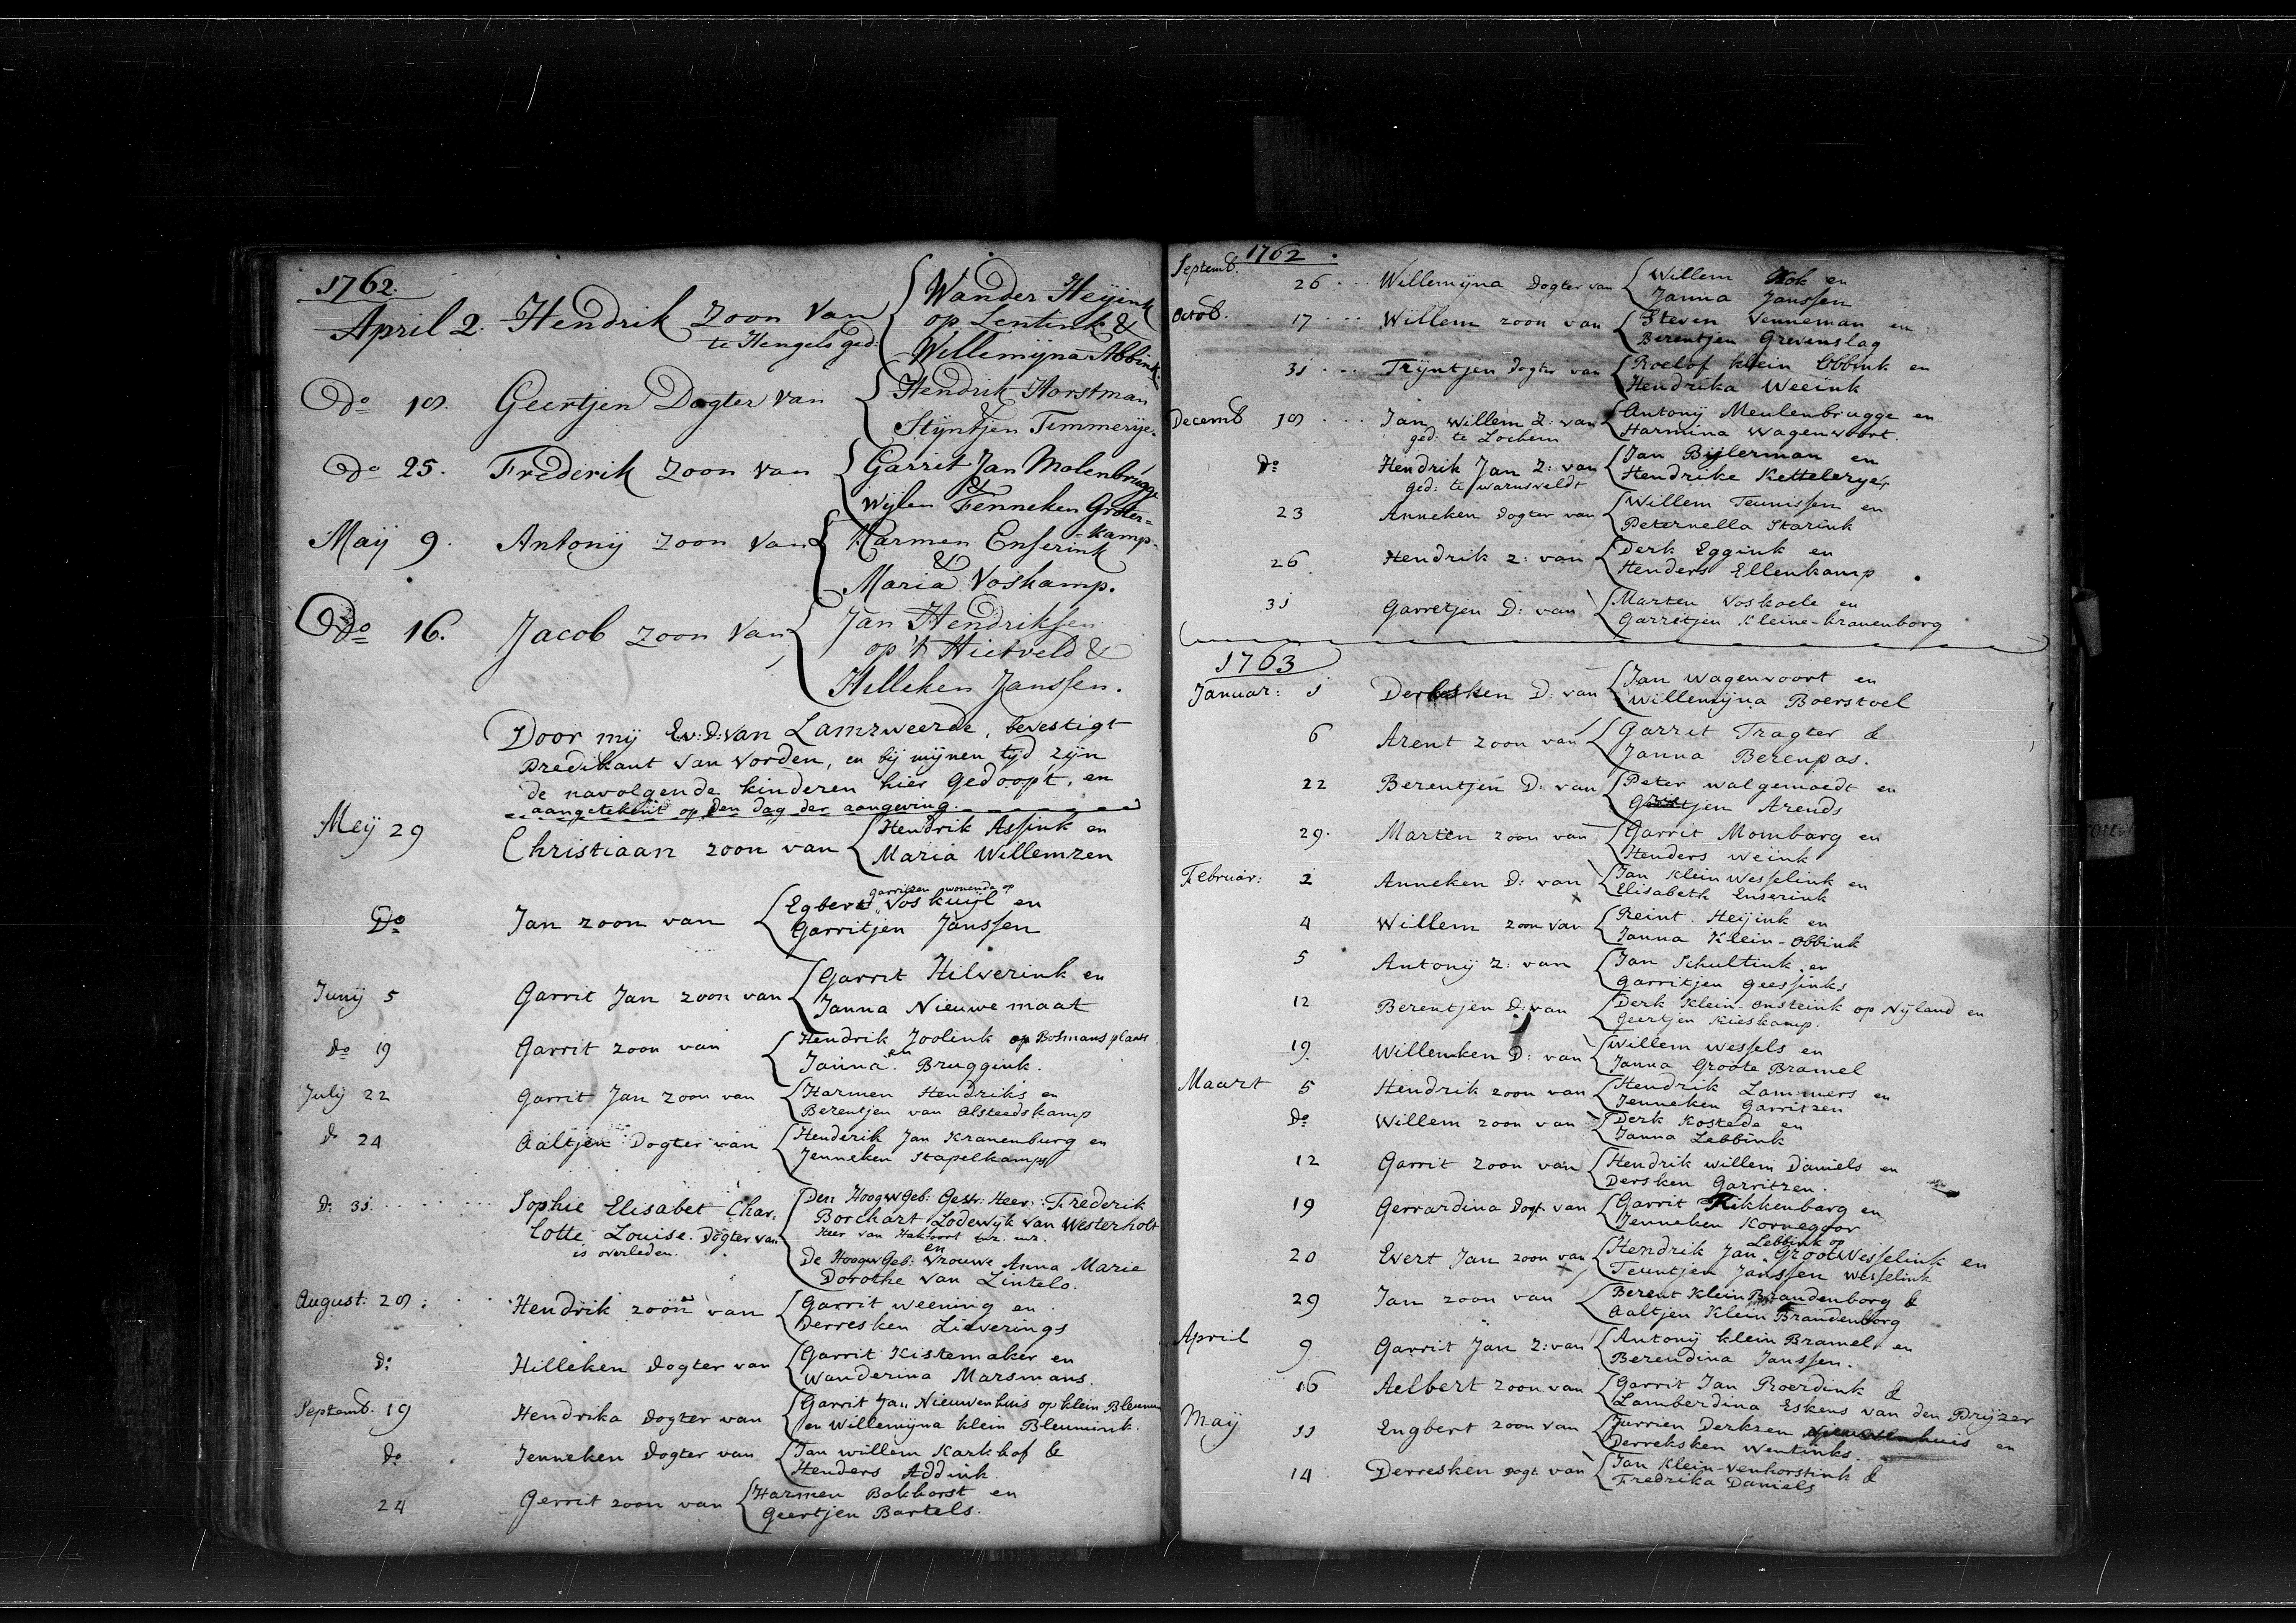 1762.
April 2. Hendrik Zoon van
te Hengelo ged:
Wander Heyink
op Lentink &
Willemijna Abbink.
Do 18. Geertjen Dogter van
Hendrik Horstman
&
Stijntjen Timmerije.
Do 25. Frederik Zoon van
Garrit Jan Molenbrugge
&
Wijlen Fenneken Groter=
=kamp.
Maij 9. Antonij Zoon van
Harmen Enserink
&
Maria Voskamp.
Do 16. Jacob Zoon van
Jan Hendriksen
op 't Hietveld &
Hilleken Janssen.
Door mij Ev: D: van Lamzweerde, bevestigt
Predikant van Vorden, en bij mijnen tijd zijn
de navolgende kinderen hier gedoopt, en
aangetekent op den dag der aangeving.
Meij 29 Christiaan zoon van
Hendrik Assink en
Maria Willemzen
Do Jan zoon van
garritzen wonende op
Egbert Voskuijl en
Garritjen Janssen
Junij 5 Garrit Jan zoon van
Garrit Hilverink en
Janna Nieuwemaat
Do 19 Garrit zoon van
Hendrik Joolink op Bosmans plaats
en
Janna Bruggink.
July 22 Garrit Jan zoon van
Harmen Hendriks en
Berentjen van Olsteedskamp
d 24 Aaltjen Dogter van
Henderik Jan Kranenburg en
Jenneken Stapelkamp
D: 31 Sophie Elisabet Char=
lotte Louise. Dogter van
is overleden.
Den HoogwGeb: Gestr: Heer: Frederik
Borchart Lodewijk van Westerholt
Heer van Hakfoort enz. enz.
en
De HoogwGeb: Vrouwe Anna Marie
Dorothe van Lintelo.
August: 28: Hendrik zoon van
Garrit weening en
Derresken Lieverings
d: Hilleken dogter van
Garrit Kistemaker en
Wanderina Marsmans.
Septemb. 19 Hendrika dogter van
Garrit Jan Nieuwenhuis op klein Bleumin
en Willemijna klein Bleumink.
do Jenneken dogter van
Jan willem Karkhof &
Henders Addink.
24 Gerrit zoon van
Harmen Bokhorst en
Geertjen Bartels.
1762.
Septemb.
26 Willemijna dogter van
Willem Kok en
Janna Janssen
Octob. 17 Willem zoon van
Steven Venneman en
Berentjen Grevenslag
31 Trijntjen dogter van
Roelof klein Obbink en
Hendrika Weeink
Decemb 18 Jan Willem Z: van
ged: te Lochem
Antonij Meulenbrugge en
Harmina Wagenvoort.
do Hendrik Jan Z: van
ged: te warnsveldt
Jan Bijlerman en
Hendrike Kettelerije
23 Anneken dogter van
Willem Teunissen en
Peternella Starink
26 Hendrik z: van
Derk Eggink en
Henders Ellenkamp
31 Garretjen D: van
Marten Voskoele en
Garretjen Kleine-kranenborg
1763
Januar: 1 Dersken D: van
Jan Wagenvoort en
Willemijna Boerstoel
6 Arent zoon van
Garrit Tragter &
Janna Berenpas.
22 Berentjen D: van
Peter walgemoedt en
Arends
29. Marten zoon van
Garrit Mombarg en
Henders weink
Februar: 2 Anneken D: van
Jan Klein Wesselink en
Elisabeth Enserink
4 Willem zoon van
Reint Heijink en
Janna Klein-Obbink
5 Antonij z: van
Jan Schultink en
Garritjen geessinks
12 Berentjen D: van
Derk Klein-onsteink op Nijland en
Geertjen Kieskamp.
19 Willemken D: van
Willem wessels en
Janna Groote Bramel
Maart 5 Hendrik zoon van
Hendrik Lammers en
Jenneken Garritzen
do Willem zoon van
Derk Kostede en
Janna Lebbink
12 Garrit zoon van
Hendrik willem Daniels en
Dersken Garritzen.
19 Gerrardina dogt. van
Garrit Rikkenbarg en
Jenneken Kornegoor
20 Evert Jan zoon van
Lebbink op
Hendrik Jan Groot Wesselink en
Teuntjen Janssen Wesselink
29 Jan zoon van
Berent Klein Brandenborg &
Aaltjen Klein Brandenborg
April 9 Garrit Jan Z: van
Antonij klein Bramel en
Berendina Janssen.
16 Aelbert zoon van
Garrit Jan Roerdink &
Lamberdina Eskens van den Brijzer
Maij 11 Engbert zoon van
Jurrien Derkzen en
Derreksken Wentinks.
14 Derresken dogt. van
Jan Klein-Venhorstink &
Fredrika Daniels